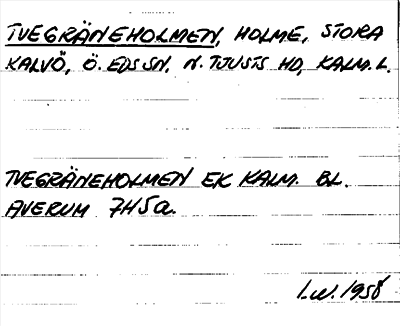 TVEGRÄNEHOLMEN, HOLME, STORA
KALVÖ, Ö. EDS SN. N. TJUSTS HD, KALM. L.
TVEGRÄNEHOLMEN EK KALM. BL.
AVERUM 7H5a.
I.W. 1958